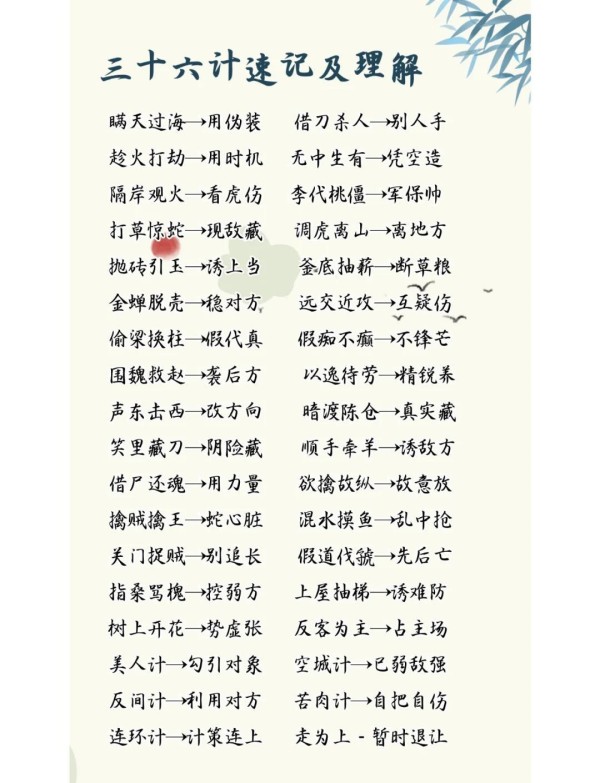 三十六计速记及理解
瞒天过海→用伪装 借刀杀人→别人手
趁火打劫→用时机 无中生有→凭空造
隔岸观火→看虎伤 李代桃僵→军保帅
打草惊蛇→现敌藏 调虎离山→离地方
抛砖引玉→诱上当 釜底抽薪→断草粮
金蝉脱壳→稳对方 远交近攻→互疑伤
偷梁换柱→假代真 假痴不癫→不锋芒
围魏救赵→袭后方 以逸待劳→精锐养
声东击西→改方向 暗渡陈仓→真实藏
笑里藏刀→阴险藏 顺手牵羊→诱敌方
借尸还魂→用力量 欲擒故纵→故意放
擒贼擒王→蛇心脏 混水摸鱼→乱中抢
关门捉贼→别追长 假道伐虢→先后亡
指桑骂槐→控弱方 上屋抽梯→诱难防
树上开花→势虚张 反客为主→占主场
美人计→勾引对象 空城计→已弱敌强
反间计→利用对方 苦肉计→自把自伤
连环计→计策连上 走为上-暂时退让